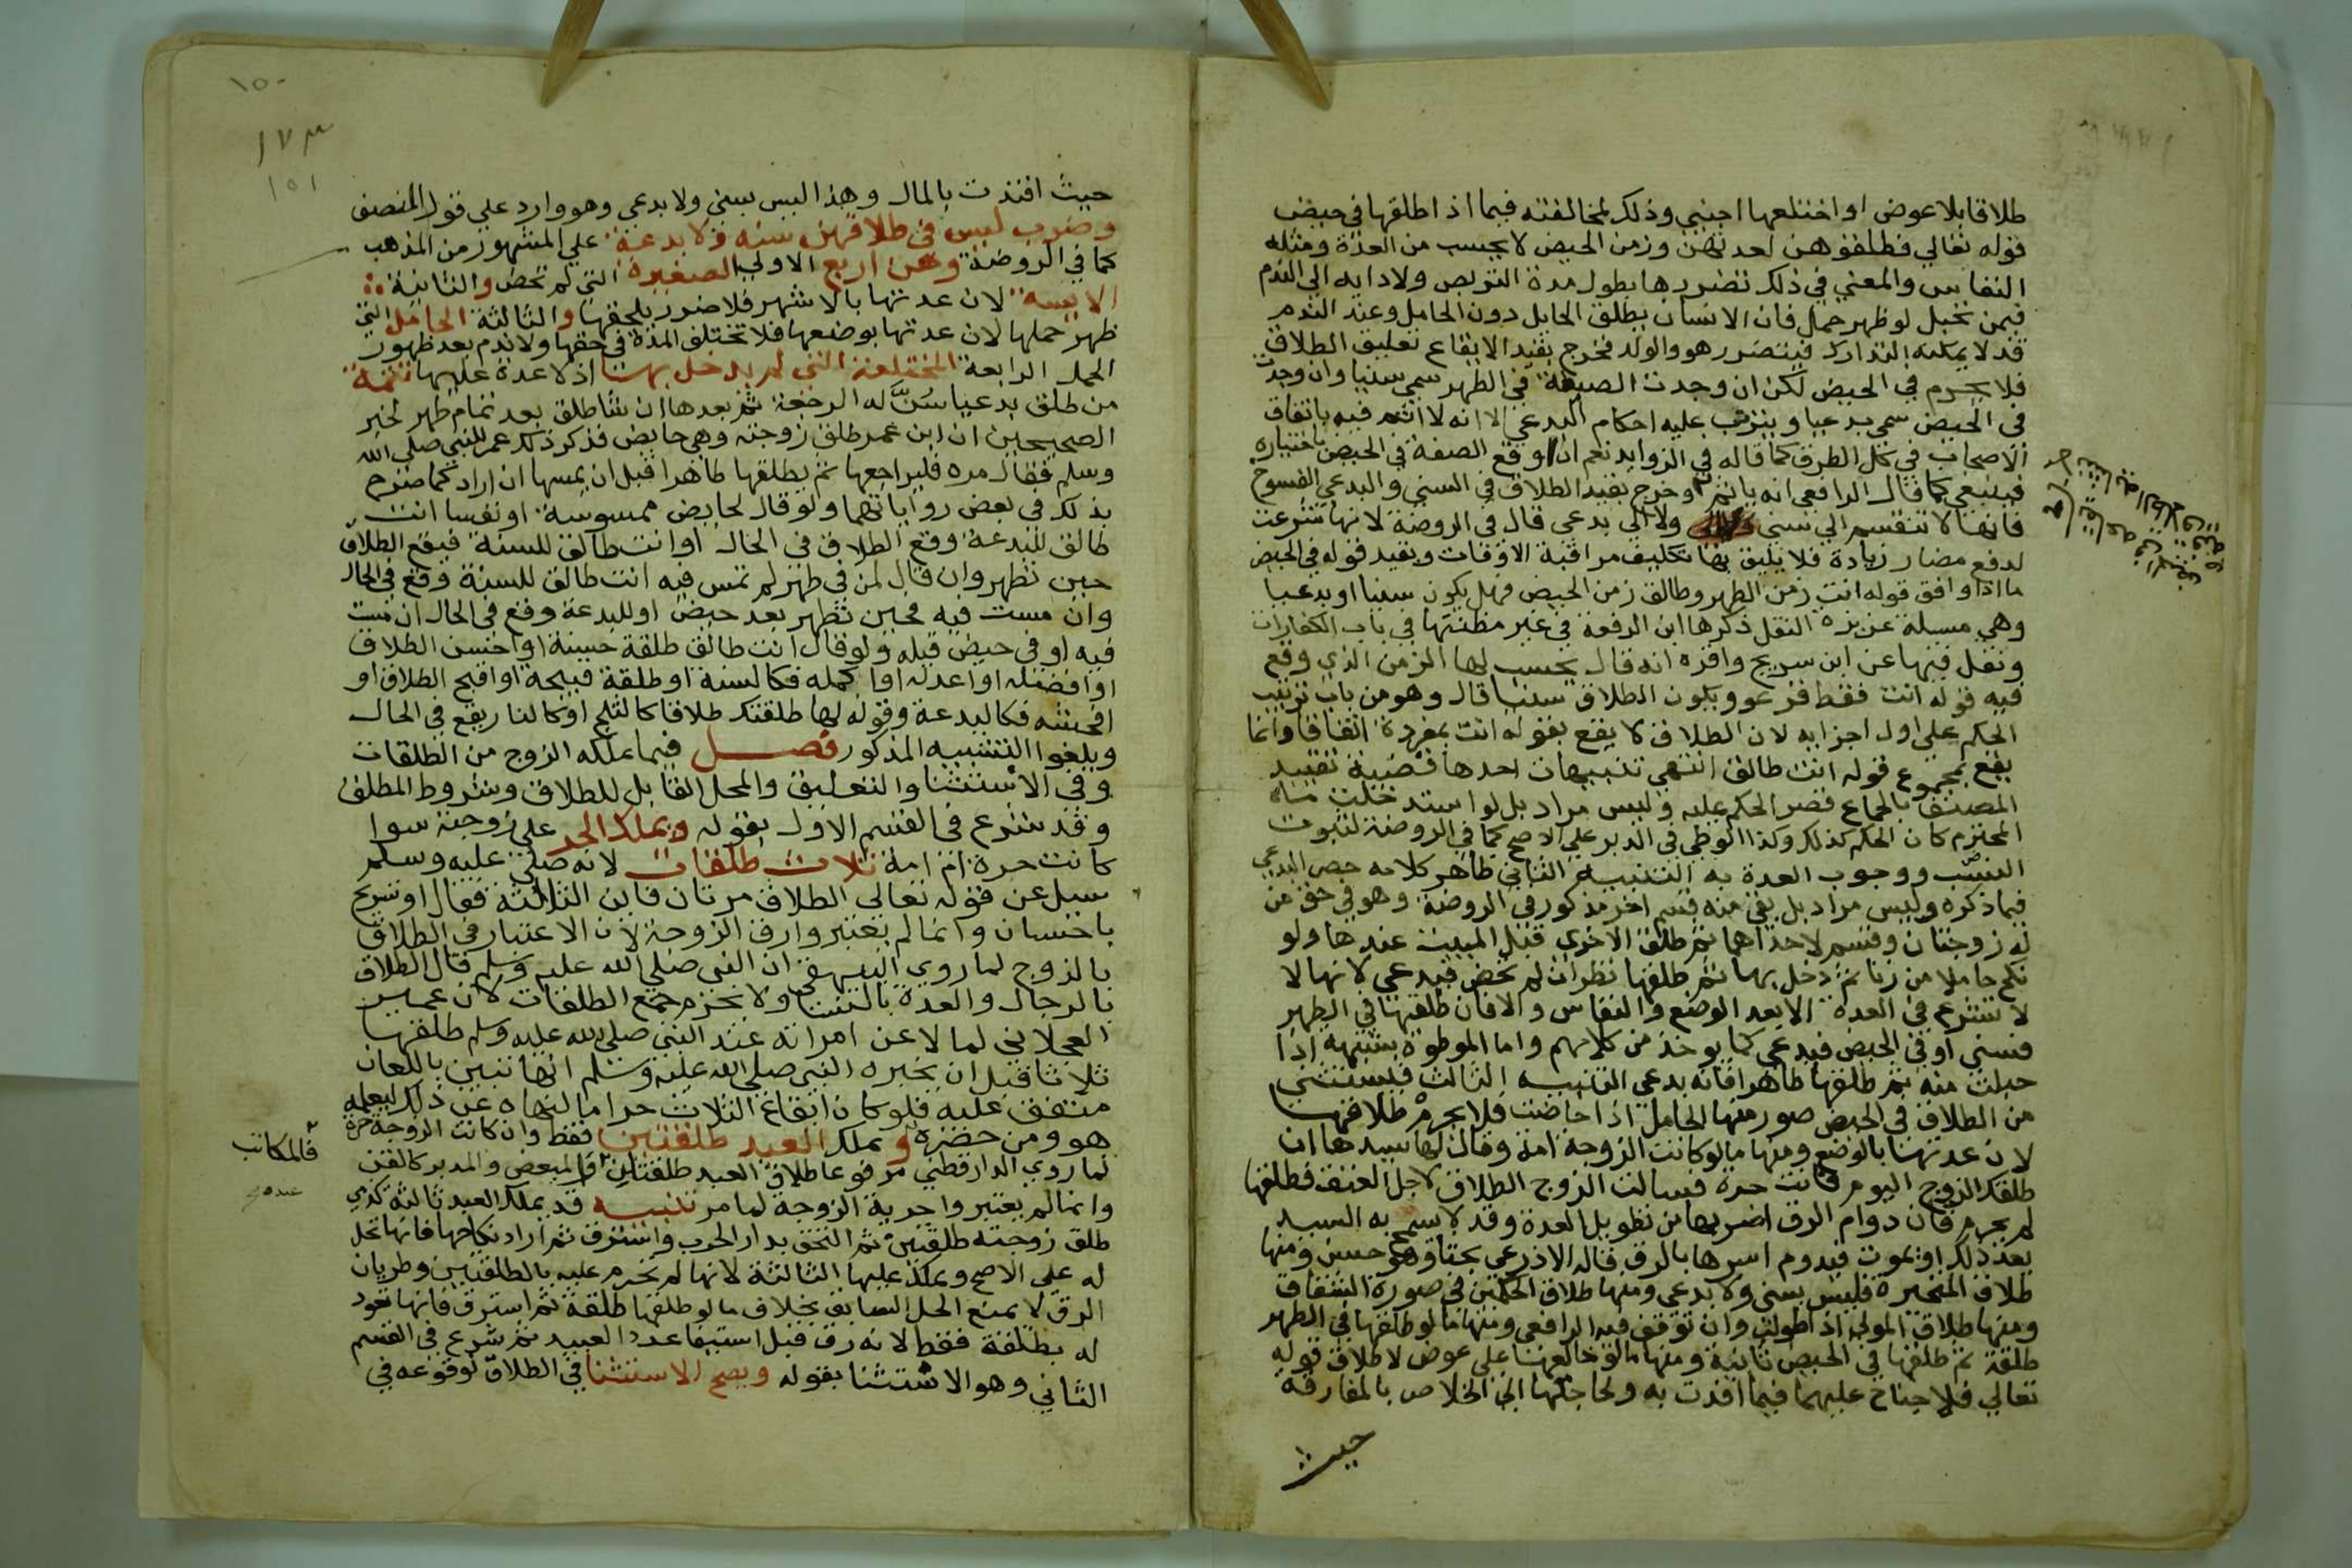 طلاقا بلا عوض او اختلعها اجنبي وذلك لمخالفته فيما اذا طلقها في حيض
قوله تعالي فطلقوهن لعدتهن وزمن الحيض لا يحسب من العدة ومثله
النفاس والمعني في ذلك تضررها بطول مدة التربص ولادايه الي الندم
فيمن تحبل لو ظهر حمل فان الانسان يطلق الحايل دون الحامل وعند الندم
قد لا يمكنه التدارك فيتضرر هو والولد فخرج بقيد الايقاع تعليق الطلاق
فلا يحرم في الحيض لكن ان وجدت الصفة في الطهر سمي سنيا وان وجدت
في الحيض سمي بدعيا ويترتب عليه احكام البدعي الا انه لا اثم فيه باتفاق
الاصحاب في كل الطرق كما قاله في الزوايد نعم ان اوقع الصفة في الحيض باختياره
فينبغي كما قال الرافعي انه ياثم وخرج بقيد الطلاق في السني والبدعي الفسوخ
فانها لا تنقسم الي سني ولا الي بدعي قال في الروضة لانها شرعت
لدفع مضار زيادة فلا يليق بها تكليف مراقبة الاوقات وبقيد قوله في الحيض
ما اذا وافق قوله انت زمن الطهر وطالق زمن الحيض فهل يكون سنيا او بدعيا
وهي مسلة عزيزه النقل ذكرها ابن الرفعة في غير مظنتها في باب الكفارات
ونقل فيها عن ابن سريج واقره انه قال يحسب لها الزمن الذي وقع
فيه قوله انت فقط قرءا ويكون الطلاق سنيا قال وهو من باب ترتيب
الحكم علي اول اجزايه لان الطلاق لا يقع بقوله انت بمفردة اتفاقا وانما
يقع بمجموع قوله انت طالق انتهي تنبيهات احدها قضية تقييد
المصنف بالجماع قصر الحكم عليه وليس مراد بل لو استدخلت ماه
المحترم كان الحكم كذلك وكذا الوطي في الدبر علي الاصح كما في الروضة لثبوت
النسب ووجوب العدة به التنبيه الثاني ظاهر كلامه حصر البدعي
فيما ذكره وليس مراد بل بقي منه قسم اخر مذكور في الروضة وهو في حق من
له زوجتان وقسم لاحداهما ثم طلق الاخري قبل المبيت عندها ولو
نكح حاملا من زنا ثم دخل بها ثم طلقها نظر ان لم تحض فبدعي لانها لا
لا تشرع في العدة الا بعد الوضع والنفاس والا فان طلقها في الطهر
فسني او في الحيض فبدعي كما يوخذ من كلامهم واما الموطوة بشبهة اذا
حبلت منه ثم طلقها طاهرا فانه بدعي التنبيه الثالث فيستثني
من الطلاق في الحيض صور منها الحامل اذا حاضت فلا يحرم طلاقها
لان عدتها بالوضع ومنها ما لو كانت الزوجة امة وقال لها سيدها ان
طلقك الزوج اليوم فانت حرة فسالت الزوج الطلاق لاجل العتق فطلقها
لم يحرم فان دوام الرق اضر بها من تطويل العدة وقد لا يسمح به السيد
بعد ذلك او يموت فيدوم اسرها بالرق قاله الاذرعي بحثا وهو حسن ومنها
طلاق المتحيرة فليس بسني ولا بدعي ومنها طلاق الحكمين في صورة الشقاق
ومنها طلاق المولي اذا طولب وان توقف فيه الرافعي ومنها ما لو طلقها في الطهر
طلقة ثم طلقها في الحيض ثانية ومنها ما لو خالعها علي عوض لاطلاق قوله
تعالي فلا جناح عليهما فيما افتدت به ولحاجتها الي الخلاص بالمفارقة
حيث
١٥٠
١٧٣
١٥١
حيث افتدت بالمال وهذا ليس بسني ولا بدعي وهو وارد علي قول المصنف
وضرب ليس في طلاقهن سنة ولا بدعة علي المشهور من المذهب
كما في الروضة وهن اربع الاولي الصغيرة التي لم تحض والثانية
الايسة لان عدتها بالاشهر فلا ضرر يلحقها والثالثة الحامل التي
ظهر حملها لان عدتها بوضعها فلا تختلف المدة في حقها ولا ندم بعد ظهور
الحمل الرابعة المختلعة التي لم يدخل بها اذ لا عدة عليها تتمة
من طلق بدعيا سُنَّ له الرجعة ثم بعدها ان شا طلق بعد تمام طهر لخبر
الصحيحين ان ابن عمر طلق زوجته وهي حايض فذكر ذلك عمر للنبي صلي الله
وسلم فقال مره فليراجعها ثم يطلقها طاهرا قبل ان يمسها ان اراد كما صرح
بذلك في بعض رواياتهما ولو قال لحايض ممسوسة او نفسا انت
طالق للبدعة وقع الطلاق في الحال او انت طالق للسنة فيقع الطلاق
حين تطهر وان قال لمن في طهر لم تمس فيه انت طالق للسنة وقع في الحال
وان مست فيه فحين تطهر بعد حيض او للبدعة وقع في الحال ان مست
فيه او في حيض قبله ولو قال انت طالق طلقة حسنة او احسن الطلاق
او افضله او اعدله او اكمله فكالسنة او طلقة قبيحة او اقبح الطلاق او
افحشه فكالبدعة وقوله لها طلقتك طلاقا كالثلج او كالنار يقع في الحال
ويلغوا التشبيه المذكور فصل فيما يملكه الزوج من الطلقات
وفي الاستثنا والتعليق والمحل القابل للطلاق وشروط المطلق
وقد شرع في القسم الاول بقوله ويملك الحر علي زوجته سوا
كانت حرة ام امة ثلاث طلقات لانه صلي عليه وسلم
سيل عن قوله تعالي الطلاق مرتان فاين الثالثة فقال او تسريح
باحسان وانما لم يعتبر وارق الزوجة لان الاعتبار في الطلاق
بالزوج لما روي البيهقي ان النبي صلي الله عليه وسلم قال الطلاق
بالرجال والعدة بالنسا ولا يحرم جمع الطلقات لان عمير
العجلاني لما لاعن امراته عند النبي صلي الله عليه وسلم طلقها
ثلاثا قبل ان يخبره النبي صلي الله عليه وسلم انها تبين باللعان
متفق عليه فلو كان ايقاع الثلاث حراما لنهاه عن ذلك ليعلمه
هو ومن حضره ويملك العبد طلقتين فقط وان كانت الزوجة حرة
لما روي الدارقطني مرفوعا طلاق العبد طلقتان والمبعض والمدبر كالقن
فالمكاتب
وانما لم يعتبر وا حرية الزوجة لما مر تنبيه قد يملك العبد ثالثة كذمي
طلق زوجته طلقتين ثم التحق بدار الحرب واسترق ثم اراد نكاحها فانها تحل
له علي الاصح ويملك عليها الثالثة لانها لم تحرم عليه بالطلقتين وطريان
الرق لا يمنع الحل السابق بخلاف ما لو طلقها طلقة ثم استرق فانها تعود
له بطلقة فقط لانه رق قبل استيفا عدد العبيد ثم شرع في القسم
الثاني وهو الاستثنا بقوله ويصح الاستثنا في الطلاق لوقوعه في